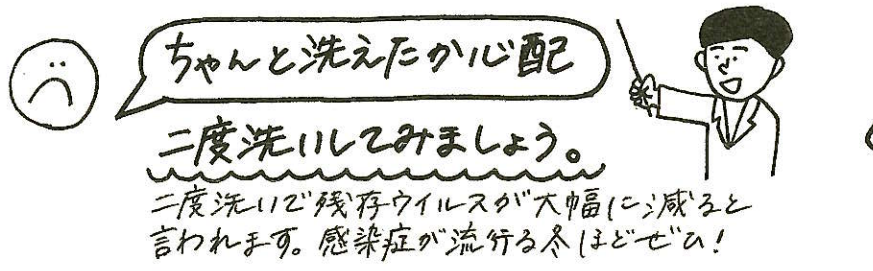 ちゃんと洗えたか心配
二度洗いしてみましょう。
二度洗いで残存ウイルスが大幅に減ると
言われます。感染症が流行る冬ほどぜひ!